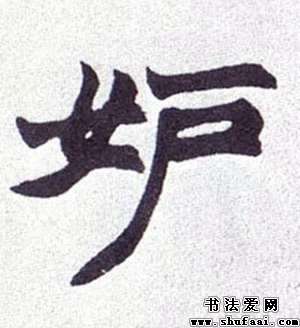 妒
书法爱网
www.shufaai.com